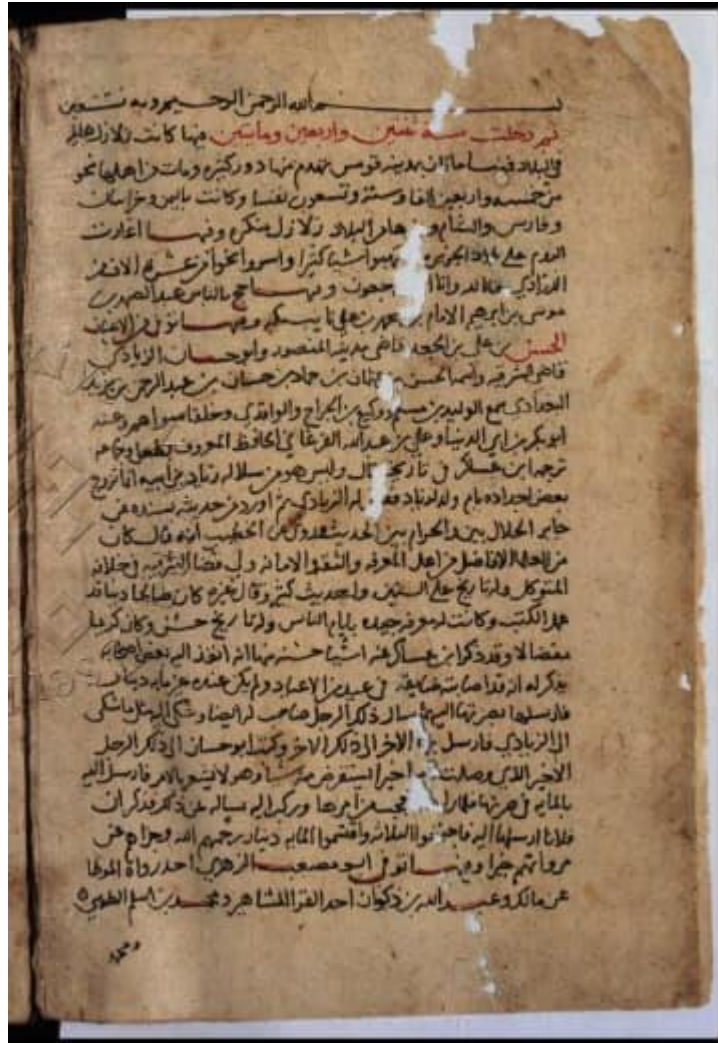 بسم الله الرحمن الرحيم وبه نستعين
ثم دخلت سنة ثنتين واربعين ومايتين فيها كانت زلازل هايلة
في البلاد فمنها ما كان بمدينة قومس تهدم منها دور كثيرة ومات من اهلها نحو
من خمسة واربعين الفا وستة وتسعون نفسا وكانت باليمن وخراسان
وفارس والشام و البلاد زلازل منكرة وفيها اغارت
الروم على بلاد الجزيرة اشيا كثيرا واسروا نحوا من عشرة الاف
الذراري فانا لله وانا راجعون وفيها حج بالناس عبد الصمد بن
موسى بن ابرهيم الامام بن محمد بن علي نايب مكة وفيها توفي من الاعيان
الحسن بن علي بن الجعد قاضي مدينة المنصور وابو حسان الزيادي
قاضي الشرقية واسمه الحسن بن عثمان بن حماد بن حسان بن عبد الرحمن بن يزيد
البغدادي سمع الوليد بن مسلم ووكيع بن الجراح والواقدي وخلقا سواهم وعنه
ابو بكر بن ابي الدنيا وعلي بن عبد الله الفرغاني الحافظ المعروف بطفل وجماعة
ترجمه ابن عساكر في تاريخه قال وليس هو من سلالة زياد بن ابيه انما تزوج
بعض اجداده بام ولد لزياد فقيل له الزيادي ثم اورد من حديثه بسنده عن
جابر الحلال بين والحرام بين الحديث وروى عن الخطيب انه قال كان
من العلما الافاضل من اهل المعرفة والثقة والامانة ولي قضا الشرقية في خلافة
المتوكل وله تاريخ على السنين وله حديث كثير وقال غيره كان صالحا دينا قد
عمل الكتب وكانت له معرفة جيدة بايام الناس وله تاريخ حسن وكان كريما
مفضالا وقد ذكر ابن عساكر عنه اشيا حسنة منها انه انفذ اليه بعض اصحابه
يذكر له انه قد اصابته ضايقة في عيد من الاعياد ولم يكن عنده غير ماية دينار
فارسلها بصرتها اليه ثم سال ذلك الرجل صاحب له ايضا وشكى اليه مثل ما شكى
الى الزيادي فارسل بها الاخر الى ذلك الاخر وكتب ابو حسان الى ذلك الرجل
الاخير الذي وصلت اليه اخيرا يستقرض منه شيا وهو لا يشعر بالامر فارسل اليه
بالماية في صرتها فلما راها تعجب من امرها وركب اليه يساله عن ذلك فذكر ان
فلانا ارسلها اليه فاجتمعوا الثلاثة واقتسموا الماية دينار رحمهم الله وجزاهم عن
مروءاتهم خيرا وفيها توفي ابو مصعب الزهري احد رواة الموطا
عن مالك وعبد الله بن ذكوان احد القرا المشاهير ومحمد بن اسلم الطوسي
ومحمد